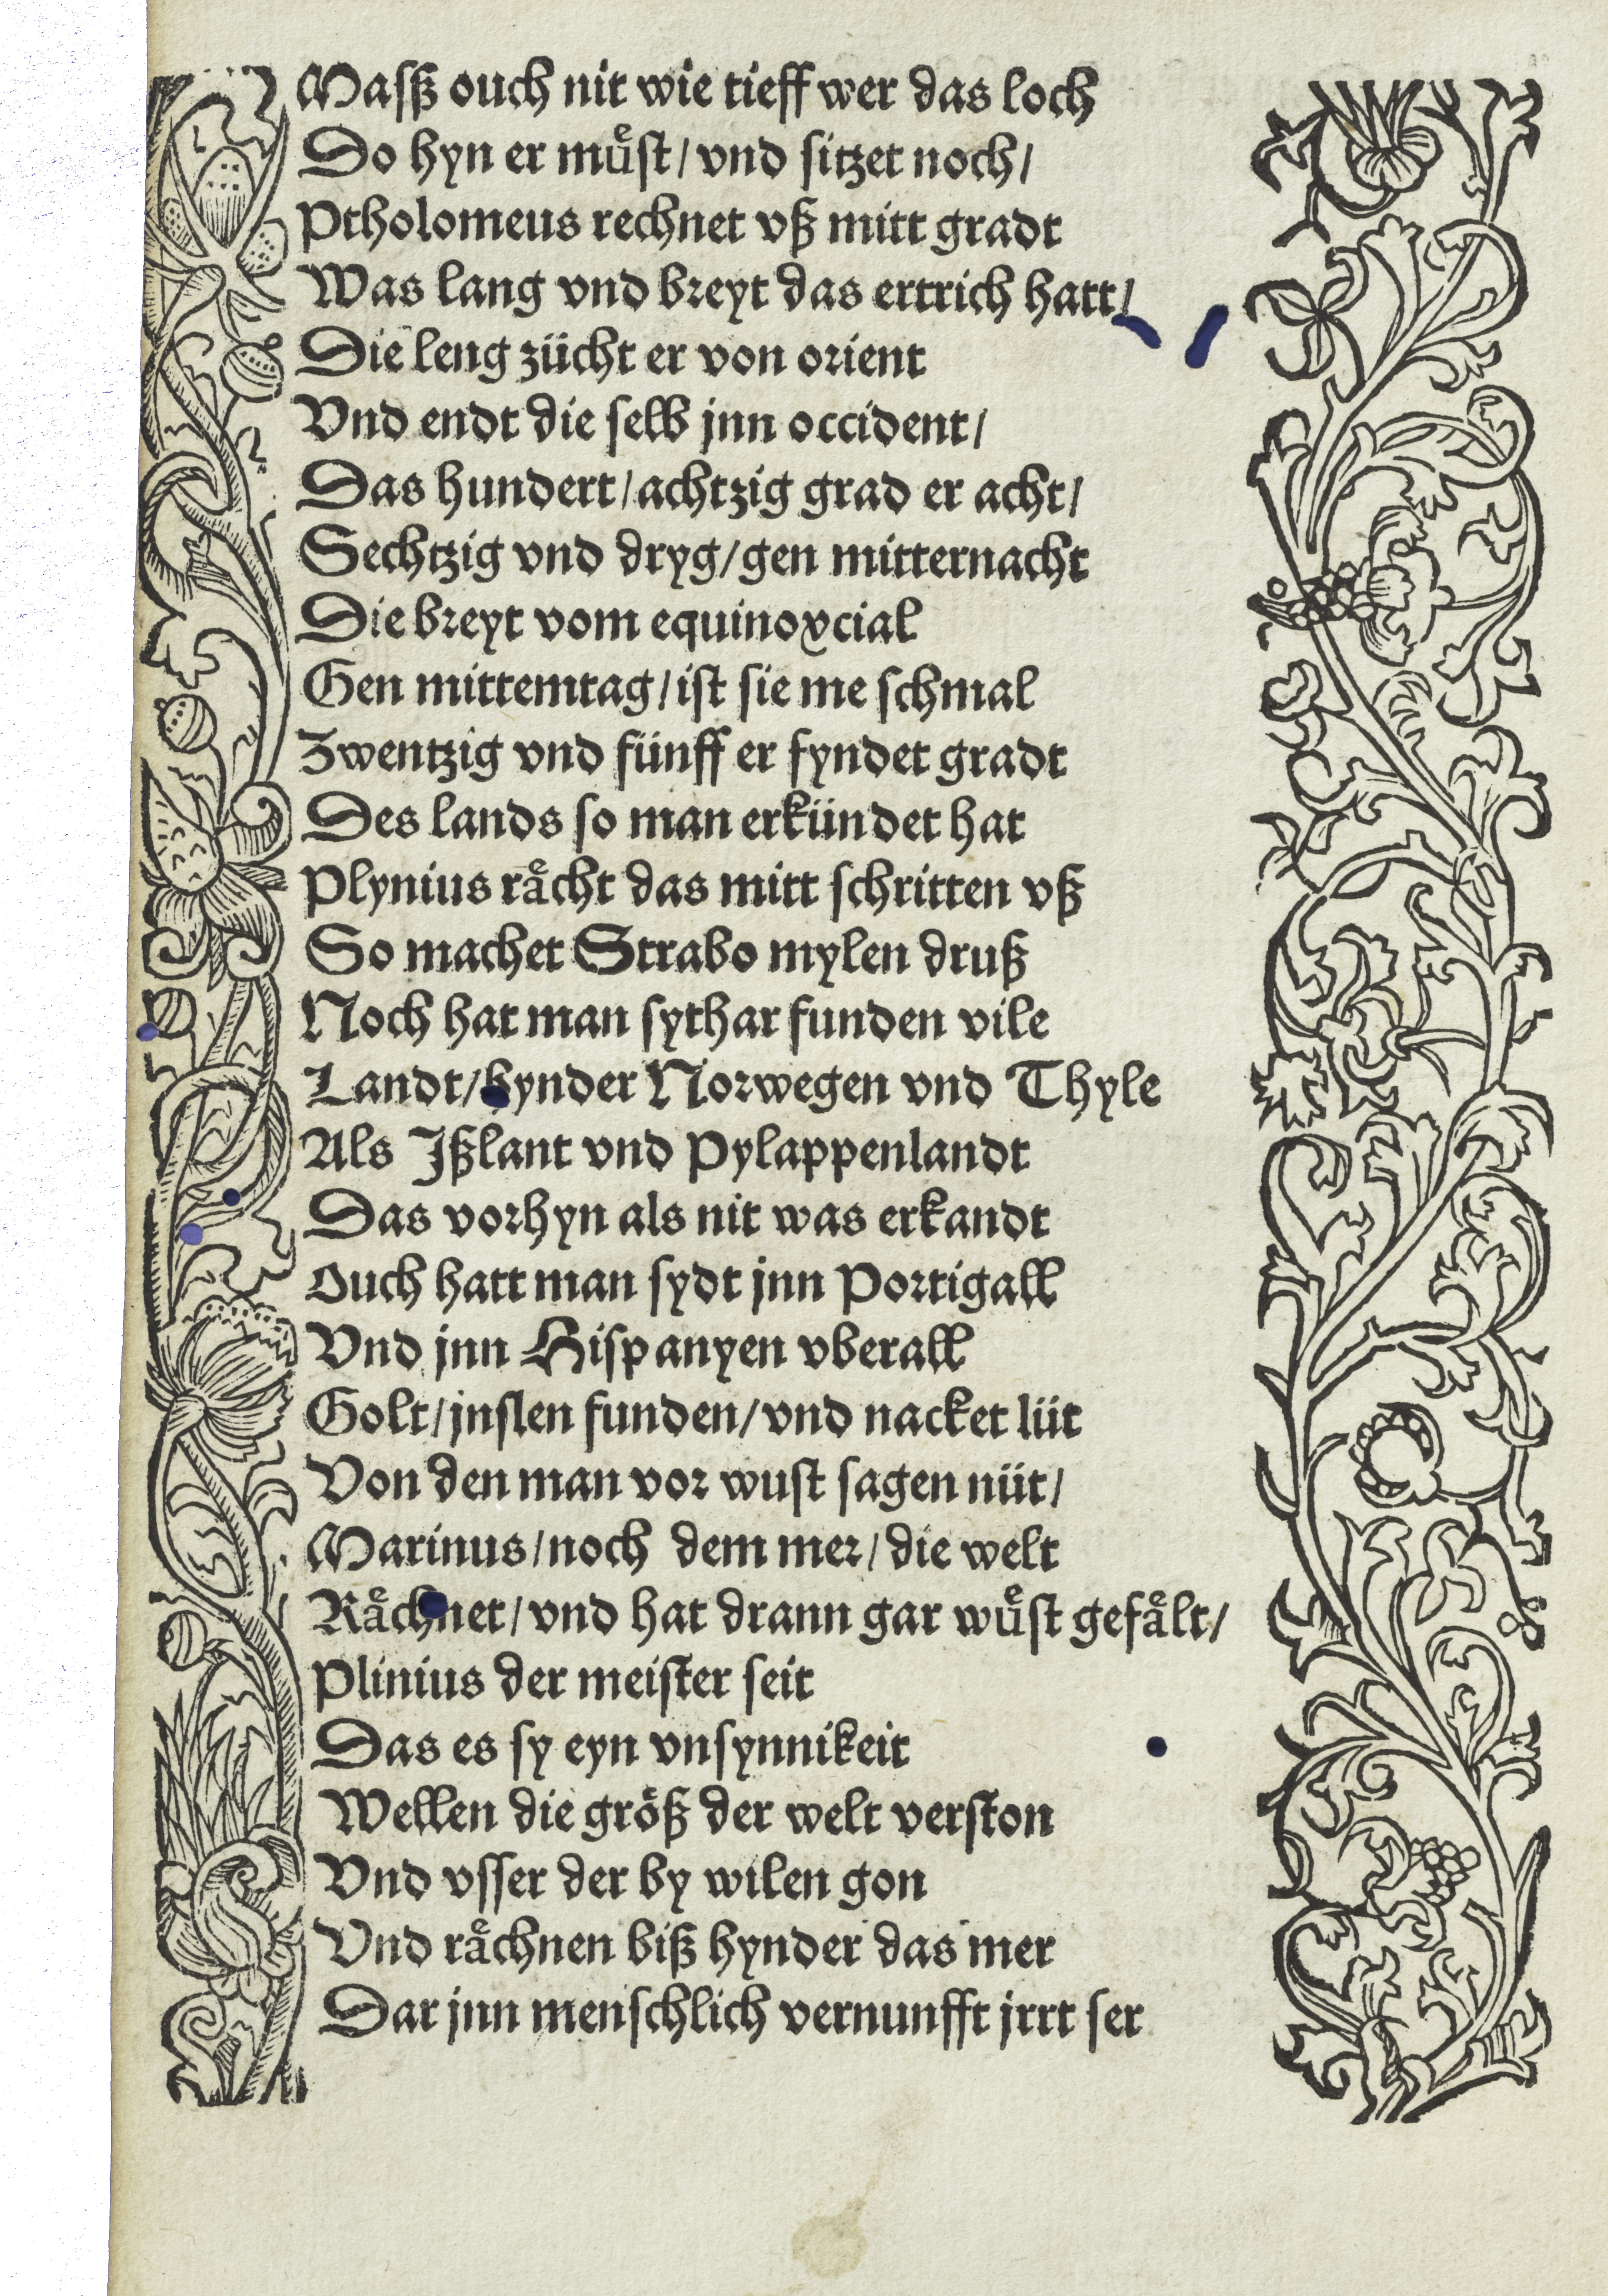 Masß ouch nit wie tieff wer das loch
Do hyn er muͤst / vnd sitzet noch /
Ptholomeus rechnet vß mitt gradt
Was lang vnd breyt das ertrich hatt /
Die leng zücht er von orient
Vnd endt die selb jnn occident /
Das hundert / achtzig grad er acht /
Sechtzig vnd dryg / gen mitternacht
Die breyt vom equinoxcial
Gen mittemtag / ist sie me schmal
Zwentzig vnd fünff er fyndet gradt
Des lands so man erkündet hat
Plynius raͤcht das mitt schritten vß
So machet Strabo mylen druß
Noch hat man sythar funden vile
Landt / hynder Norwegen vnd Thyle
Als Jßlant vnd Pylappenlandt
Das vorhyn als nit was erkandt
Ouch hatt man sydt jnn Portigall
Vnd jnn Hispanyen vberall
Golt / jnslen funden / vnd nacket lüt
Von den man vor wust sagen nüt /
Marinus / noch dem mer / die welt
Raͤchnet / vnd hat drann gar wuͤst gefaͤlt /
Plinius der meister seit
Das es sy eyn vnsynnikeit
Wellen die größ der welt verston
Vnd vsser der by wilen gon
Vnd raͤchnen biß hynder das mer
Dar jnn menschlich vernunfft jrrt ser